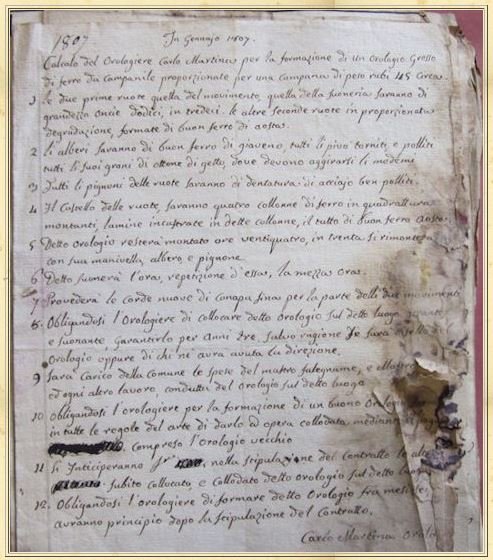 1807
In Gennajo 1807.
Calcolo del Orologiere Carlo Martina per la formazione di un Orologio Grosso
di ferro da Campanile proporzionale per una campana di peso rubi 45 Circa.
1 le due prime ruote quella del movimento, quella della suoneria saranno di
grandezza oncie dodici, in tredeci. le altre seconde ruote in proporzionata
degradazione, formate di buon ferro di aosta.
2 li alberi saranno di buon ferro di giaveno, tutti li pivò torniti, e politti
tutti li suoi grani di ottone di getto, dove devono aggirarli li medemi
3 Tutti li pignoni delle ruote saranno di dentatura di acciajo ben politti.
4 Il Castello delle ruote, saranno quatro collonne di ferro in quadrattura
montanti, lamine incastrate in dette collonne, il tutto di buon ferro Aosta.
5 Detto Orologio resterà montato ore ventiquatro, in trenta si rimonterà
con sua manivella, albero e pignone.
6 Detto suonerà l'ora, repetizione d'essa, la mezza ora.
7 Provederà le corde nuove di canapa fina per la parte delli due movimenti
8. Obligandosi l'Orologiere di collocare detto Orologio sul detto luogo
e suonante Garantirlo per Anni tre. salvo ragione
Orologio oppure di chi ne avrà avuta la direzione.
9 Sarà Carico della Comune le spese del mastro falegname, e
ed ogni altro lavoro, condutta del Orologio sul detto luogo
10 Obligandosi l'orologiere per la formazione di un buono Orologio
in tutte le regole del arte di darlo ad opera collodata mediante
compreso l'Orologio vecchio
11 Si Anticiperanno nella stipulazione del Contratto le altre
subito collocato e Collodato detto Orologio sul detto luogo
12. Obligandosi l'Orologiere di formare detto Orologio fra mesi sei,
avranno principio dopo la stipulazione del Contratto.
Carlo Martina